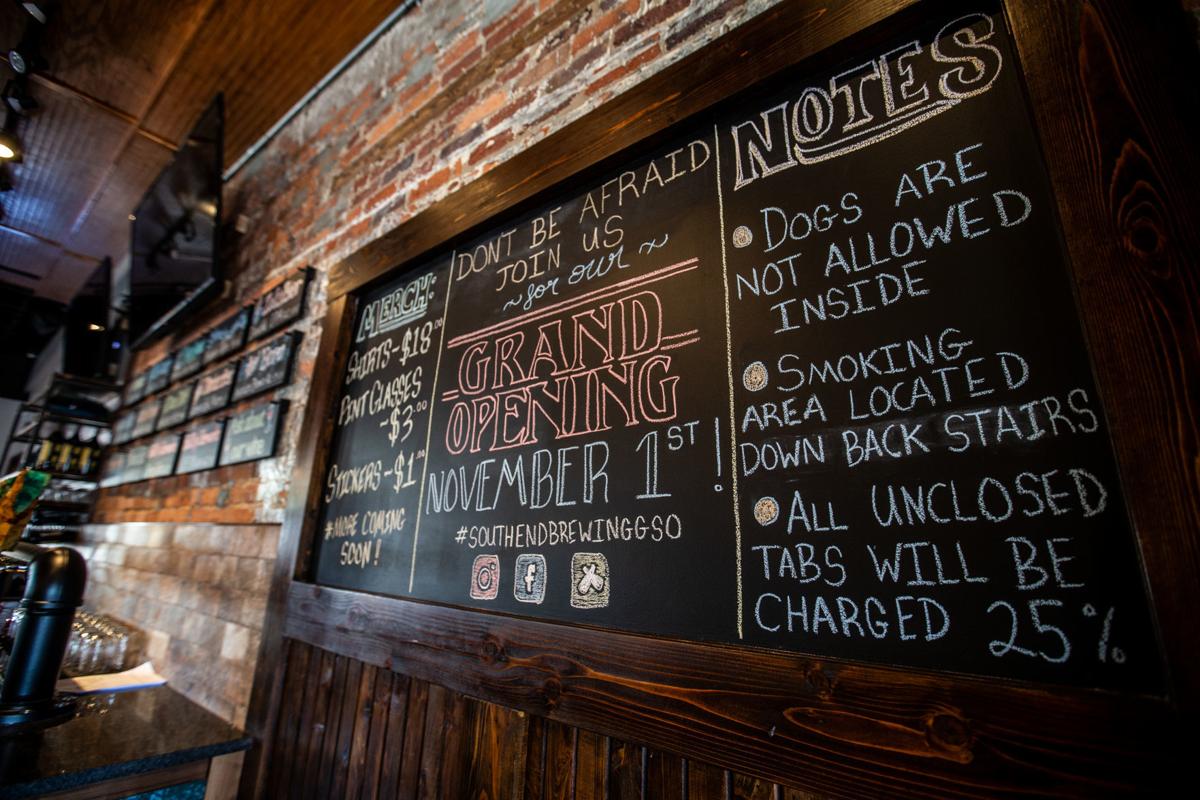 MERCH:
SHIRTS-$18.00
PINT GLASSES
-$3.00
STICKERS-$1.00
*MORE COMING
SOON!
DONT BE AFRAID
JOIN US
~for our~
GRAND
OPENING
NOVEMBER 1ST!
#SOUTHENDBREWINGGSO
f
NOTES
• DOGS ARE
NOT ALLOWED
INSIDE
• SMOKING
AREA LOCATED
DOWN BACK STAIRS
• ALL UNCLOSED
TABS WILL BE
CHARGED 25%